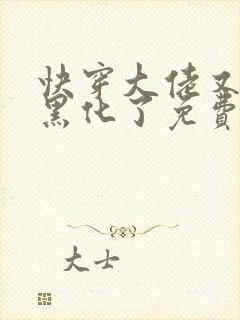 快穿大佬又
黑化了免费
大士